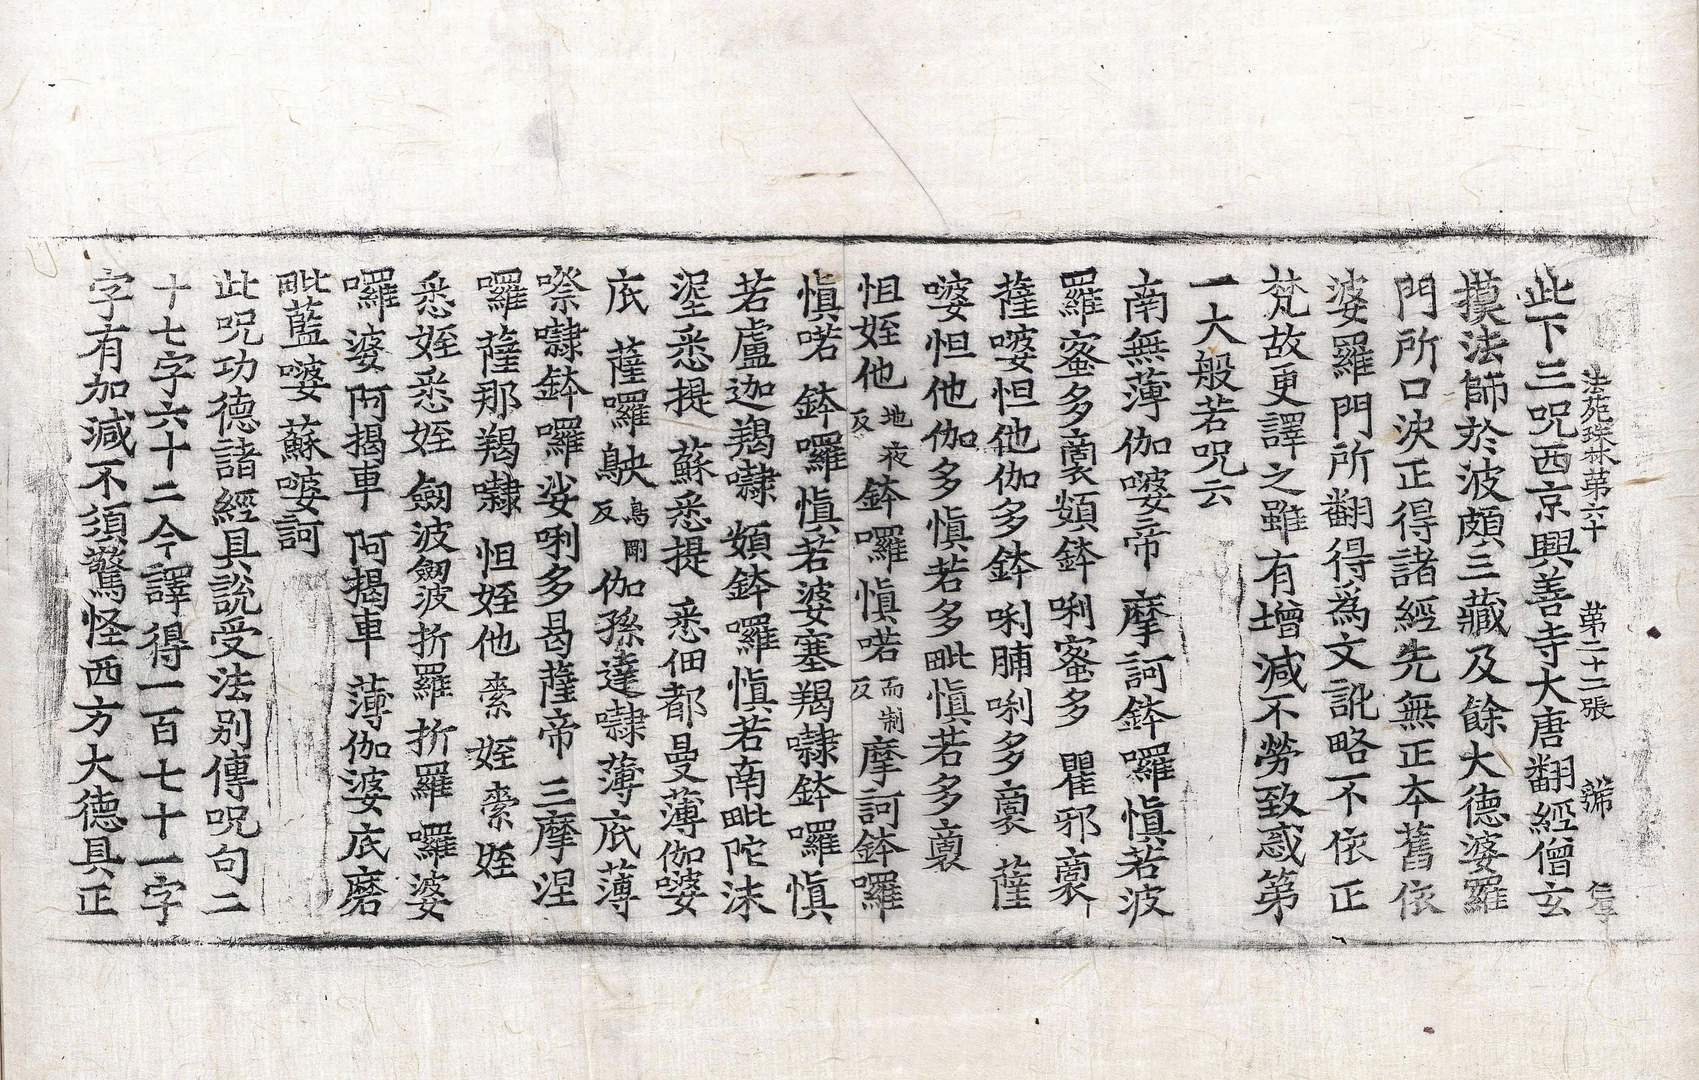 法苑珠林第六十　第二十二張　號
此下三呪西京興善寺大唐翻經僧玄
摸法師於波頗三藏及餘大德婆羅
門所口決正得諸經先無正本舊依
婆羅門所翻得爲文訛略不依正
梵故更譯之雖有增減不勞致惑第
一大般若呪云
南無薄伽㗑帝 摩訶鉢囉愼若波
羅蜜多裔頞鉢唎蜜多 瞿邪裔
薩㗑怛他伽多鉢唎脯唎多裔 薩
㗑怛他伽多愼若多毗愼若多裔
怛姪他地夜反鉢囉愼喏而制反摩訶鉢囉
愼喏 鉢囉愼若婆塞羯囇鉢囉愼
若盧迦羯囇 頞鉢囉愼若南毗陀沫
泥悉提 蘇悉提 悉佃都曼薄伽㗑
底 薩囉鴥烏剛反伽孫達囇薄底薄
㗫囇鉢囉娑唎多曷薩帝 三摩涅
囉薩那羯囇 怛姪他 柰姪柰姪
悉姪悉姪 劒波劒波折羅折羅 囉婆
囉婆 阿揭車 阿揭車 薄伽婆底磨
毗藍㗑 蘇㗑訶
此呪功德諸經具說受法别傳呪句二
十七字六十二今譯得一百七十一字
字有加減不須驚怪西方大德具正